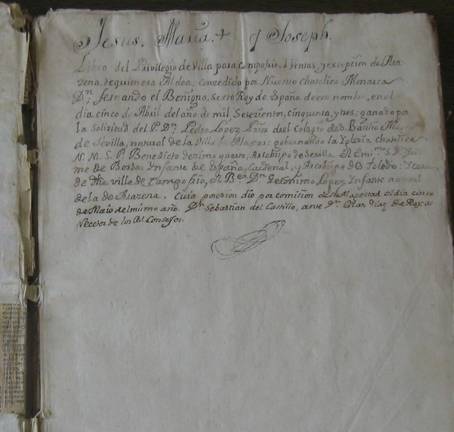 Jesus. Maria. + y Joseph.
Libro del Privilegio de Villa para Campofrio, y ventas, y exempcion del Ara
zena, de quien era Aldea, concedido por Nuestro Monarca
Dn. Fernando el Benigno, Sexto Rey de España de este nombre, en el
dia cinco de Abril del año de mil Setecientos, cinquenta, y tres, ganado por
la Solicitud del P. Dn. Pedro Lopez del Colegio de S. Basilio
de Sevilla, natural de la Villa; governando la Yglesia
N. M. S. P. Benedicto decimo quarto, Arzobispo de Sevilla el
de Borbon Infante de España, Cardenal, y Arzobispo de Toledo:
de dha villa de Campofrio, el Dn. Lopez Infante natural
de la de Arazena. Cuia posesion dio por comision de S. Magestad el dia cinco
de Maio del mismo año Dn. Sebastian del Castillo, ante Dn. Diaz de
de los Rs. Consejos.